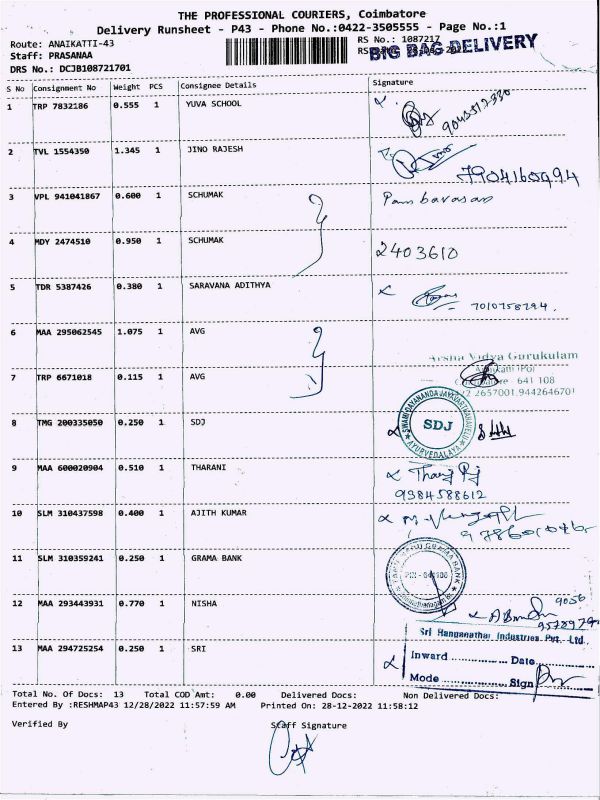 THE PROFESSIONAL COURIERS, Coimbatore
Delivery Runsheet - P43 - Phone No.:0422-3505555 - Page No.:1
Route: ANAIKATTI-43
RS No.: 1087217
Staff: PRASANAA
BIG BAG DELIVERY
DRS No.: DCJB108721701
S No Consignment No Weight PCS Consignee Details Signature
1 TRP 7832186 0.555 1 YUVA SCHOOL
2 TVL 1554350 1.345 1 JINO RAJESH
7904160994
3 VPL 941041867 0.600 1 SCHUMAK
4 MDY 2474510 0.950 1 SCHUMAK 2403610
5 TDR 5387426 0.380 1 SARAVANA ADITHYA
7010758294.
6 MAA 295062545 1.075 1 AVG
Arsha Vidya Gurukulam
7 TRP 6671018 0.115 1 AVG
641 108
2657001,9442646701
8 TMG 200335050 0.250 1 SDJ
SDJ
AYURVEDALAYA
9 MAA 600020904 0.510 1 THARANI
9384588612
10 SLM 310437598 0.400 1 AJITH KUMAR
11 SLM 310359241 0.250 1 GRAMA BANK
GRAMA BANK
12 MAA 293443931 0.770 1 NISHA
Sri Ranganathar Industries Pvt. Ltd.,
13 MAA 294725254 0.250 1 SRI
Inward Date
Mode Sign
Total No. Of Docs: 13 Total COD Amt: 0.00 Delivered Docs: Non Delivered Docs:
Entered By :RESHMAP43 12/28/2022 11:57:59 AM Printed On: 28-12-2022 11:58:12
Verified By Staff Signature